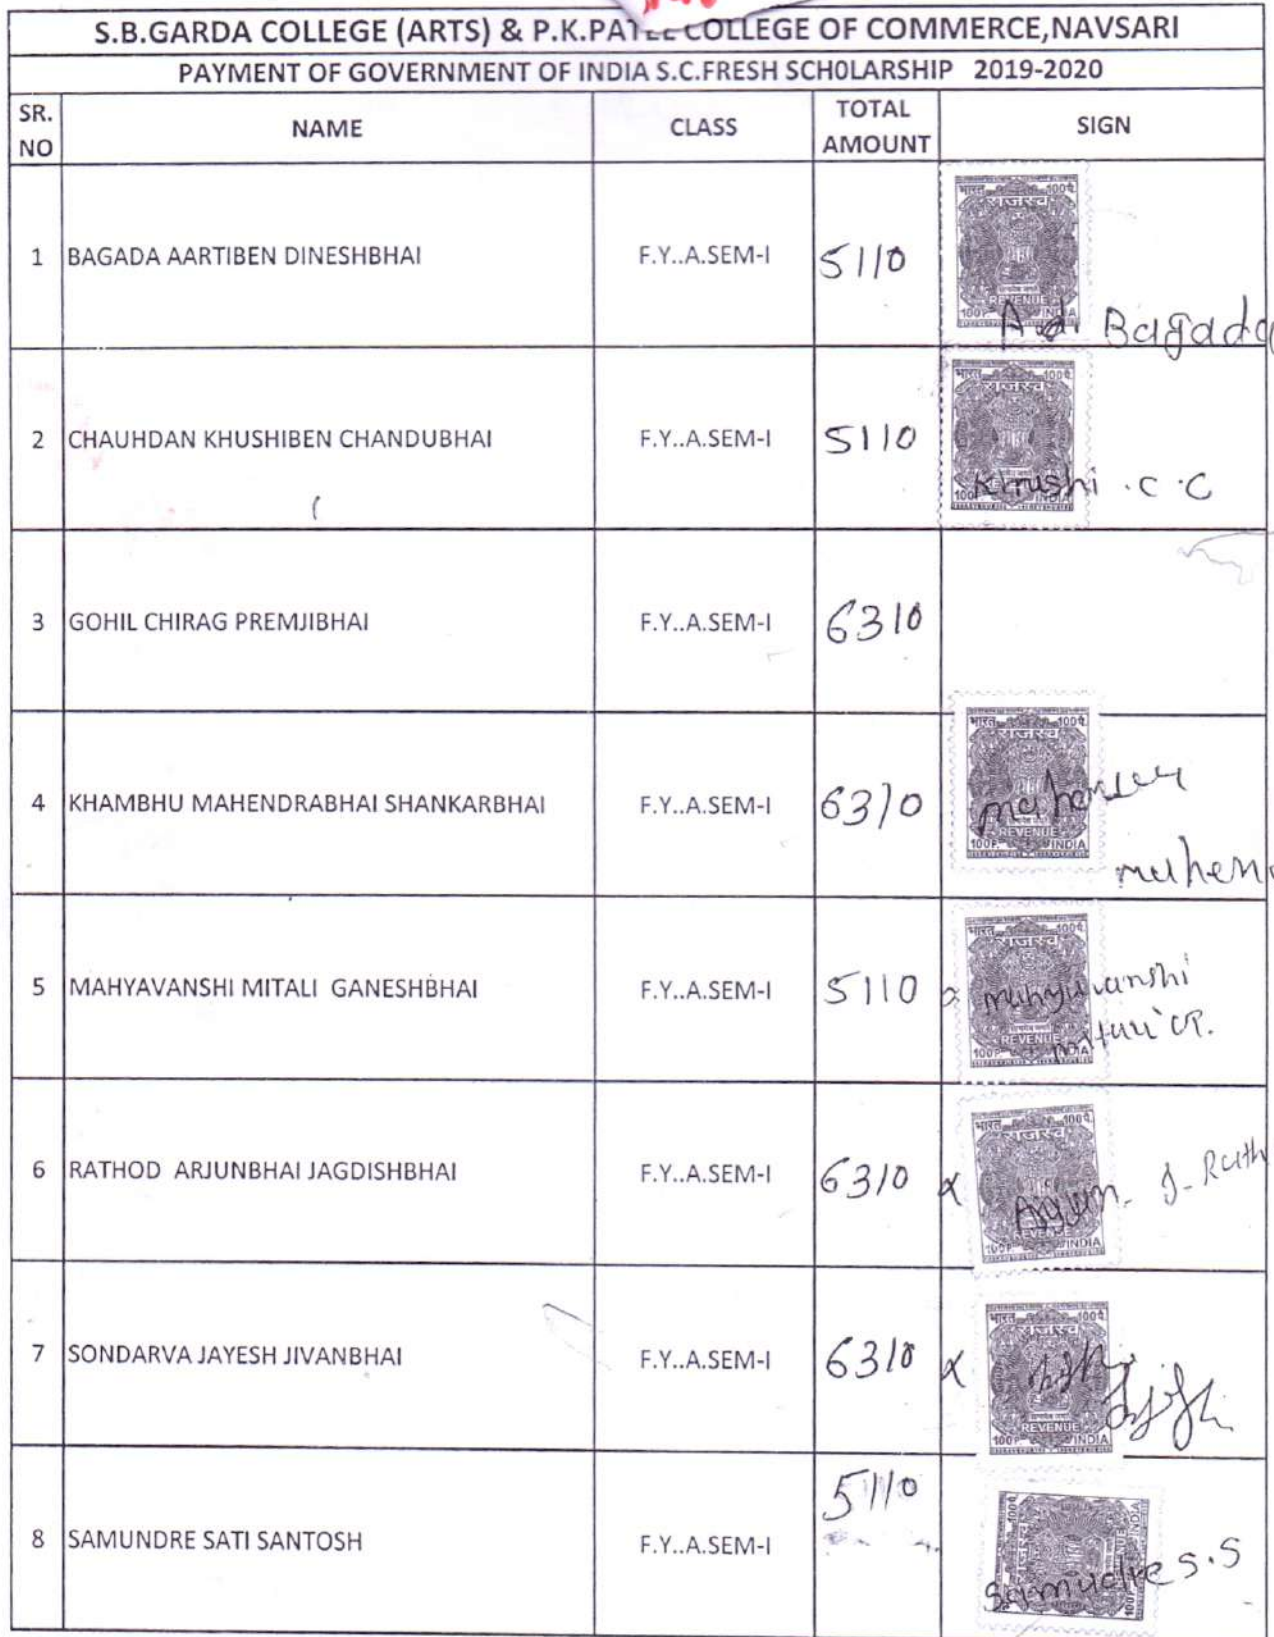 S.B.GARDA COLLEGE (ARTS) & P.K.PATEL COLLEGE OF COMMERCE,NAVSARI
PAYMENT OF GOVERNMENT OF INDIA S.C.FRESH SCHOLARSHIP 2019-2020
SR. NO NAME CLASS TOTAL AMOUNT SIGN
1 BAGADA AARTIBEN DINESHBHAI F.Y..A.SEM-I 5110
भारत 100पै.
राजस्व
REVENUE
100P. INDIA
A.d. Bagada
2 CHAUHDAN KHUSHIBEN CHANDUBHAI F.Y..A.SEM-I 5110
भारत 100पै.
राजस्व
100P. INDIA
Khushi .C.C
3 GOHIL CHIRAG PREMJIBHAI F.Y..A.SEM-I 6310
4 KHAMBHU MAHENDRABHAI SHANKARBHAI F.Y..A.SEM-I 6310
भारत 100पै.
राजस्व
REVENUE
100P. INDIA
mahen
5 MAHYAVANSHI MITALI GANESHBHAI F.Y..A.SEM-I 5110
भारत 100पै.
राजस्व
mahyavanshi
REVENUE
100P. INDIA
6 RATHOD ARJUNBHAI JAGDISHBHAI F.Y..A.SEM-I 6310
भारत 100पै.
राजस्व
Arjun. J. Rath
REVENUE
100P. INDIA
7 SONDARVA JAYESH JIVANBHAI F.Y..A.SEM-I 6310
भारत 100पै.
राजस्व
REVENUE
100P. INDIA
8 SAMUNDRE SATI SANTOSH F.Y..A.SEM-I 5110
भारत 100पै.
राजस्व
REVENUE
100P. INDIA
Samudre S.S